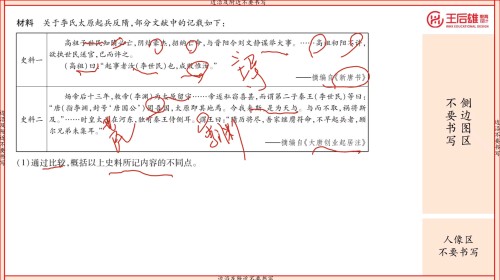 边沿及附近不要书写
王后雄
材料 关于李氏太原起兵反隋,部分文献中的记载如下:
史料一
高祖子世民知隋必亡,阴结豪杰,招纳亡命,与晋阳令刘文静谋举大事。……高祖初不许,
欲执世民送官,已而许之。
(高祖)曰"起事者汝(李世民)也,成败惟汝。"
——摘编自《新唐书》
史料二
炀帝后十三年,敕帝(李渊)为太原留守……帝遂私窃喜甚,而谓第二子秦王(李世民)等曰:
"唐(指李渊,时号"唐国公")固吾国,太原即其地焉。今我来斯,是为天与。与而不取,祸将斯
及。"……时皇太子在河东,独有秦王侍侧耳。谓王曰:"隋历将尽,吾家继膺符命,不早起兵者,顾
尔兄弟未集耳。"
——摘编自《大唐创业起居注》
(1)通过比较,概括以上史料所记内容的不同点。
侧边图区
不要书写
人像区
不要书写
边沿及附近不要书写